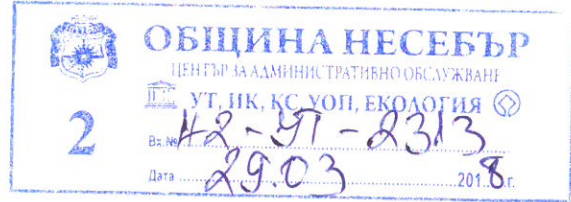 ОБЩИНА НЕСЕБЪР
ЦЕНТЪР ЗА АДМИНИСТРАТИВНО ОБСЛУЖВАНЕ
УТ, ИК, КС, УОП, ЕКОЛОГИЯ
2
Вх.№ Н2-УП-2313
Дата 29.03 2018г.